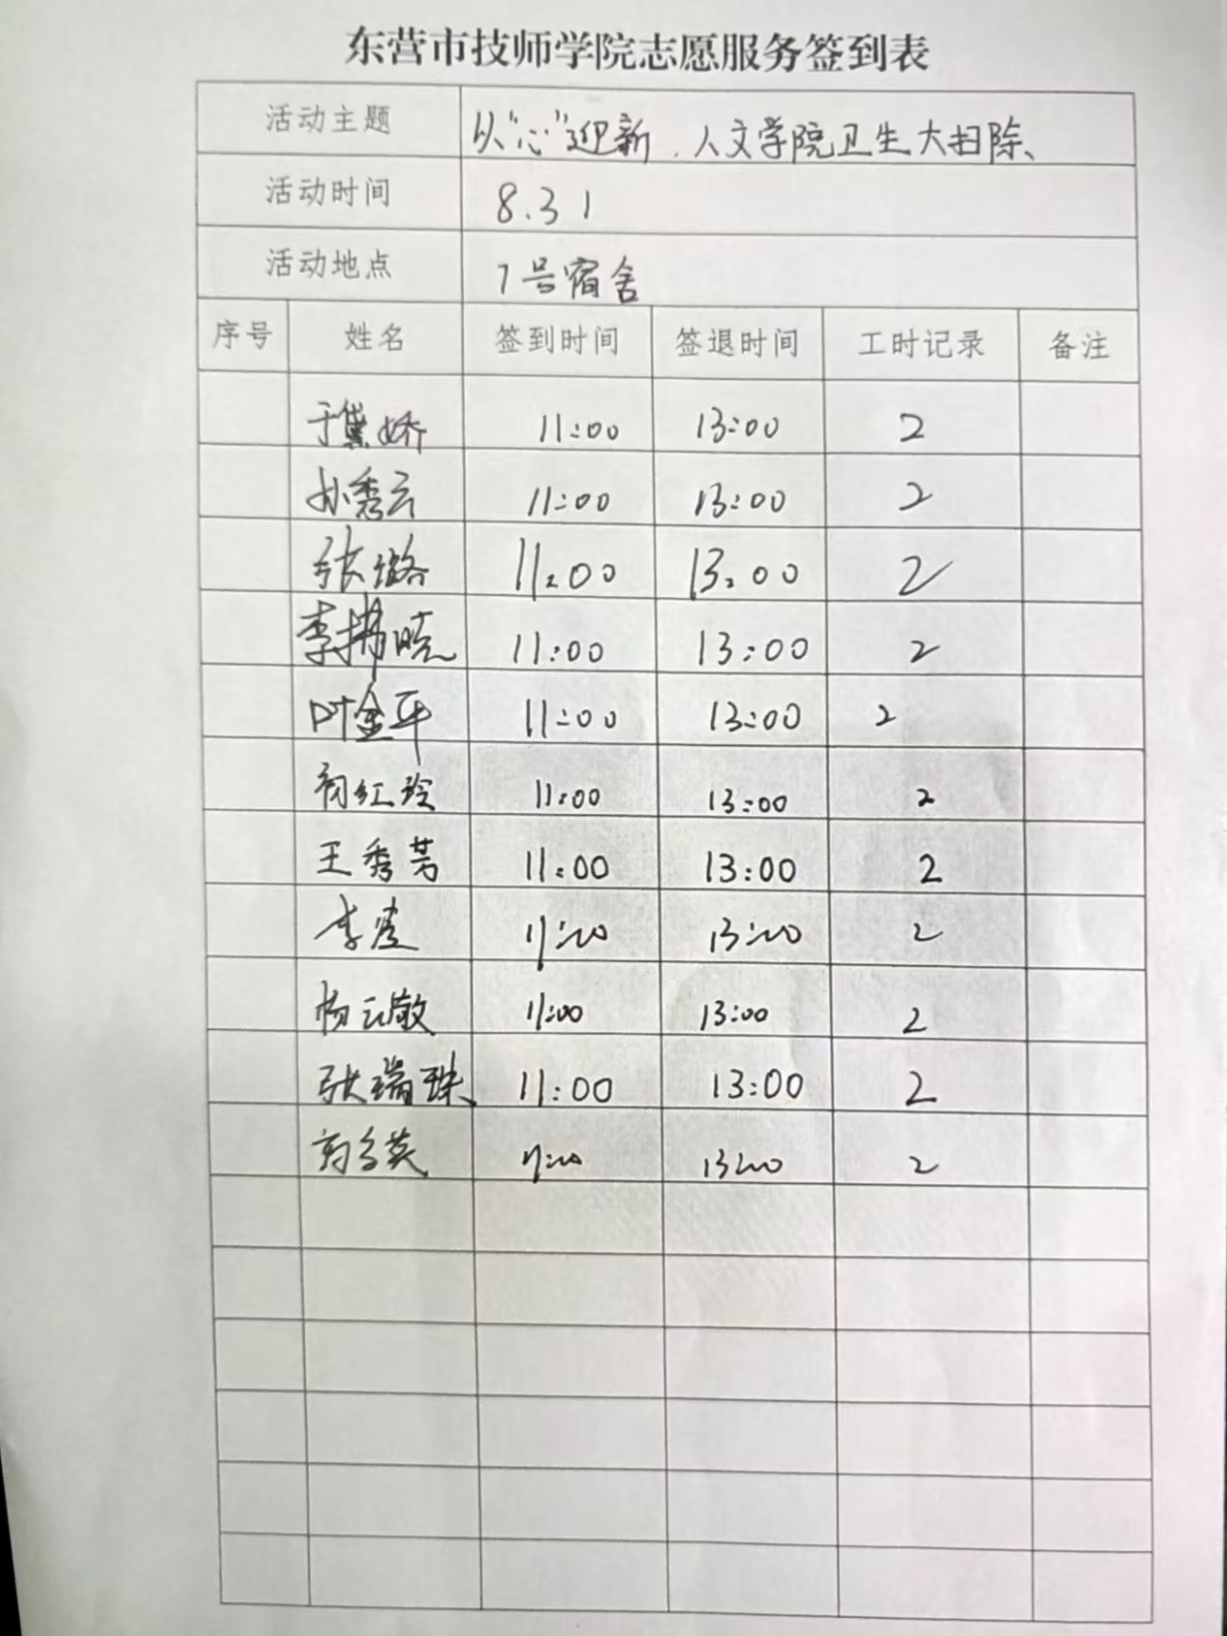 东营市技师学院志愿服务签到表
活动主题 从“心”迎新、人文学院卫生大扫除、
活动时间 8.31
活动地点 7号宿舍
序号 姓名 签到时间 签退时间 工时记录 备注
于黛娇 11:00 13:00 2
孙秀云 11:00 13:00 2
张璐 11:00 13:00 2
李 晓 11:00 13:00 2
叶金平 11:00 13:00 2
初红玲 11:00 13:00 2
王秀芳 11:00 13:00 2
李 11:00 13:00 2
杨云敬 11:00 13:00 2
张瑞珠 11:00 13:00 2
英 11:00 13:00 2